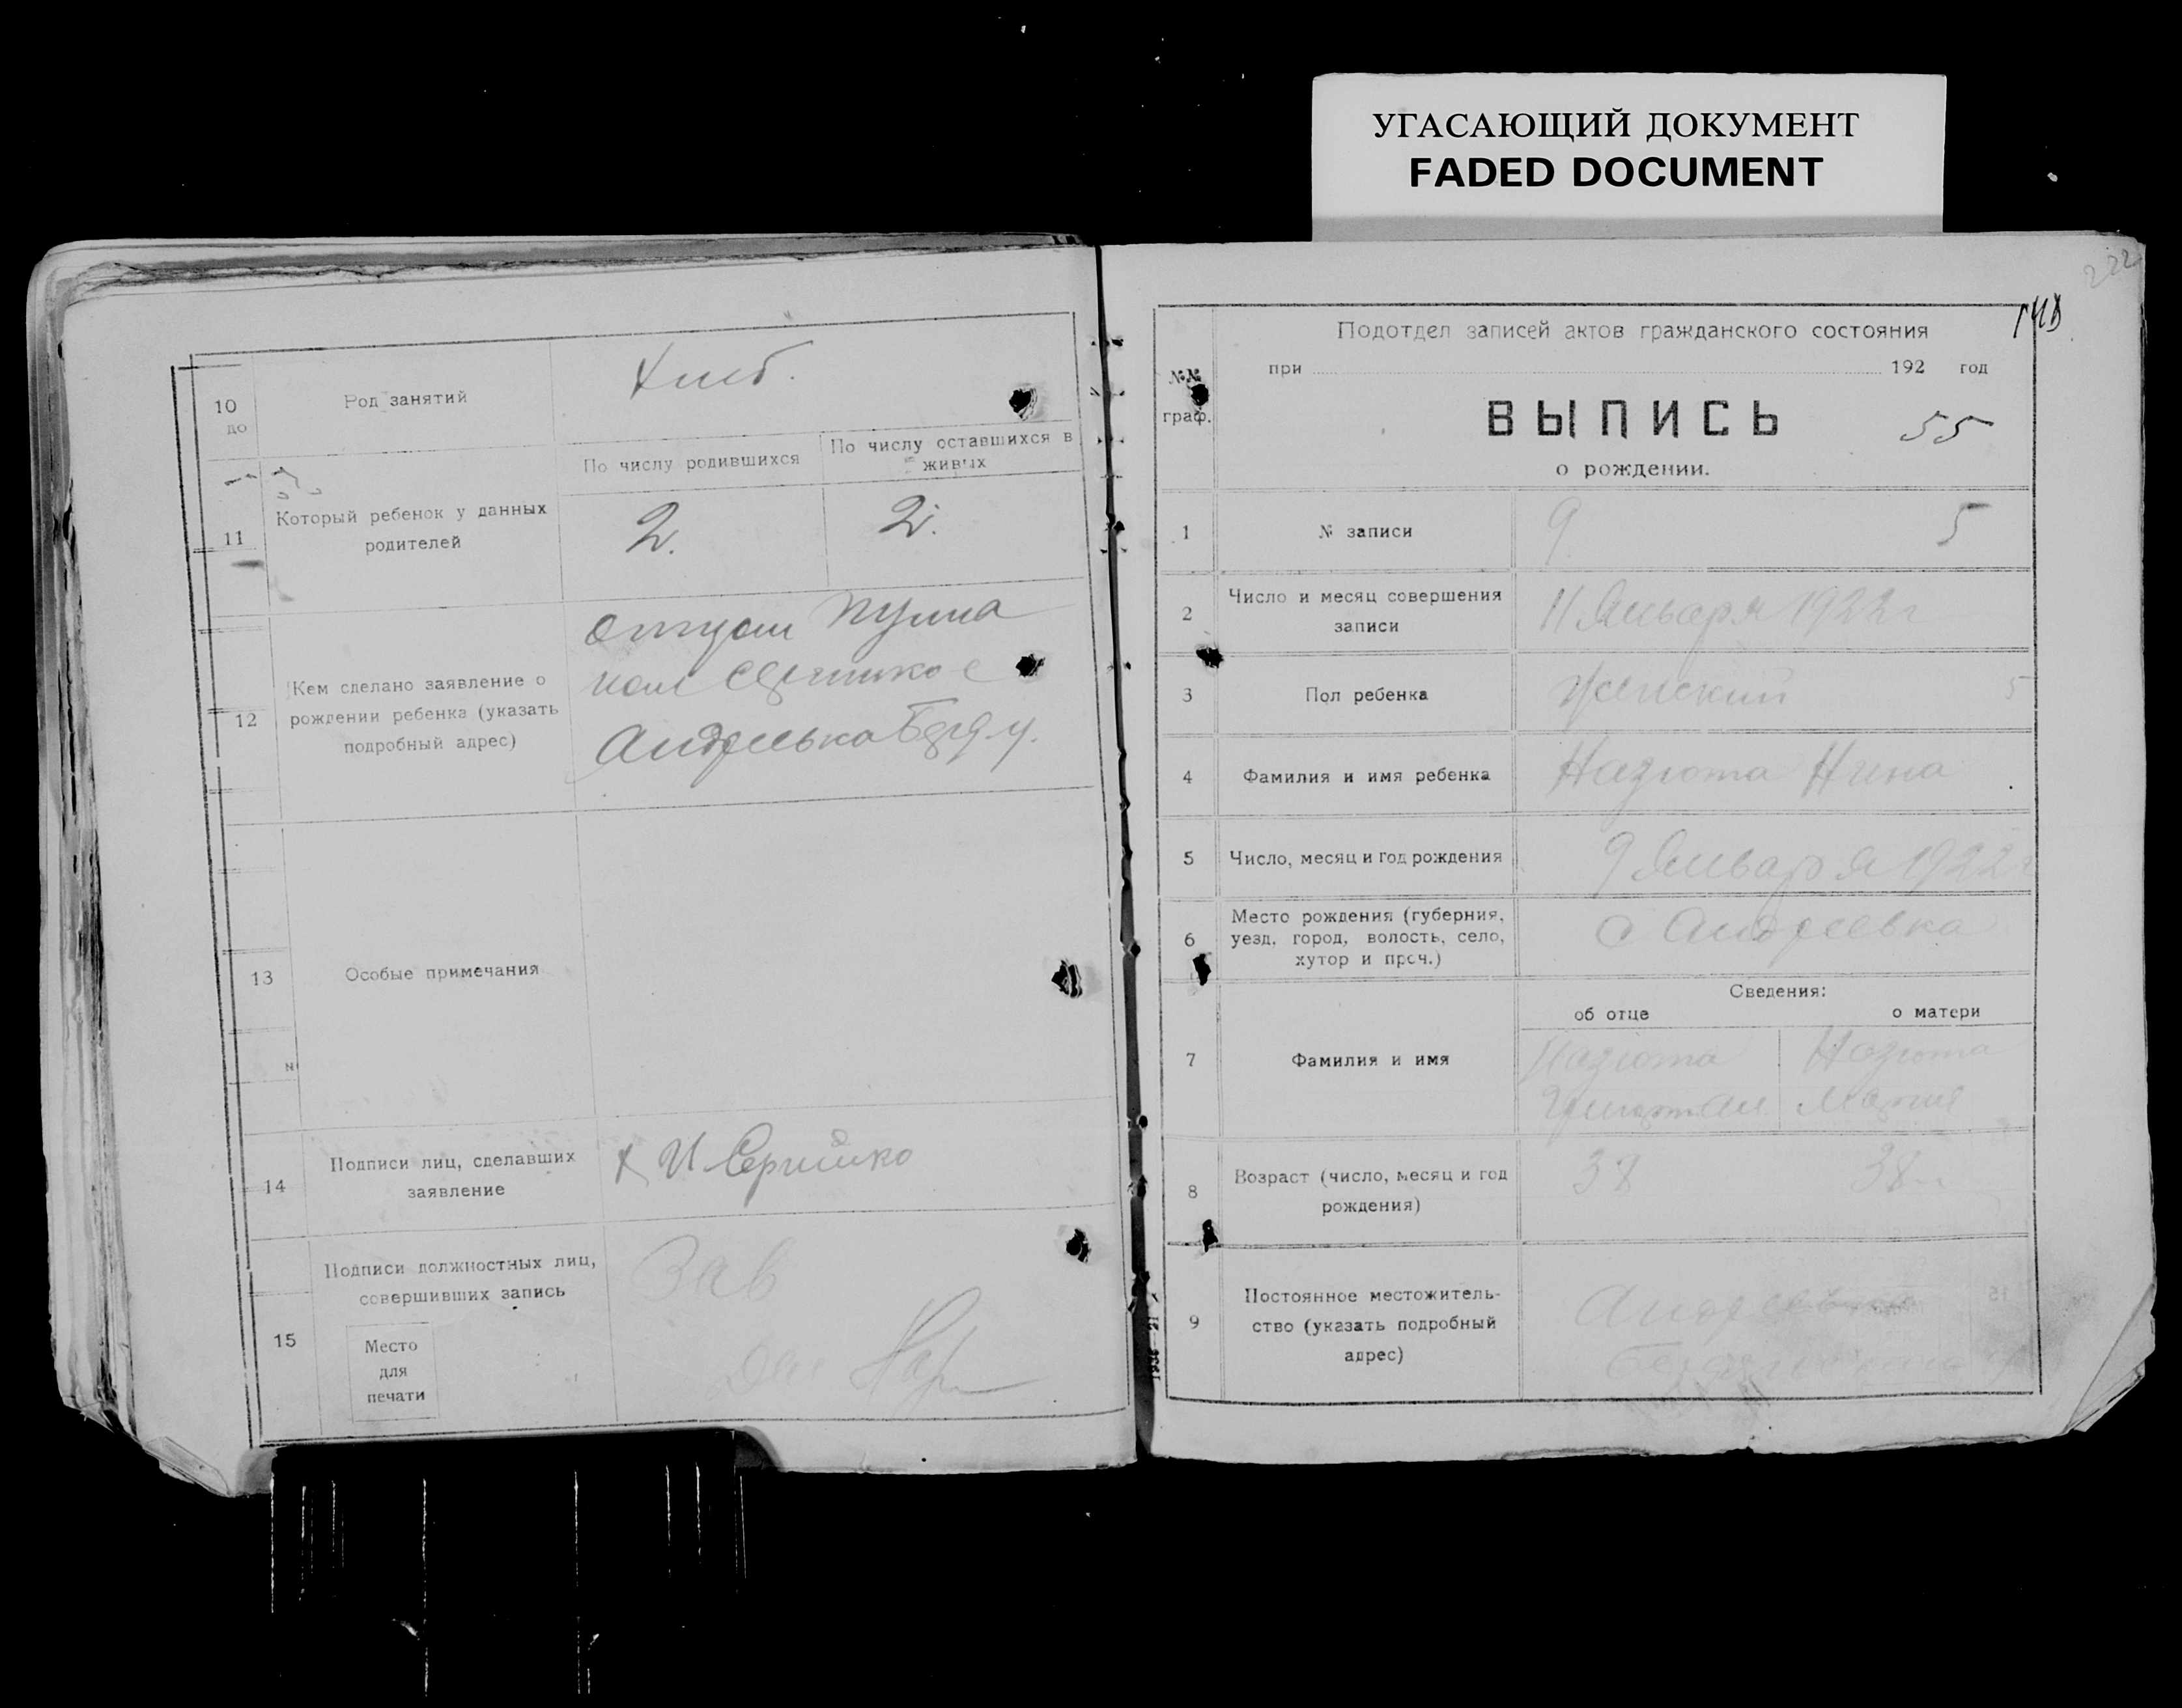 УГАСАЮЩИЙ ДОКУМЕНТ
FADED DOCUMENT
10
до
Род занятий
Хлеб.
11
Который ребенок у данных
родителей
По числу родившихся
По числу оставшихся в
живых
2.
2.
12
Кем сделано заявление о
рождении ребенка (указать
подробный адрес)
отцом
13
Особые примечания
14
Подписи лиц, сделавших
заявление
15
Подписи должностных лиц,
совершивших запись
Место
для
печати
Зав
222
Подотдел записей актов гражданского состояния
при 192 год
№№
граф.
ВЫПИСЬ
55
о рождении.
1
№ записи
9
5
2
Число и месяц совершения
записи
11 Января 1922 г
3
Пол ребенка
Женский
5
4
Фамилия и имя ребенка
Назюта Нина
5
Число, месяц и год рождения
9 Января 1922 г
6
Место рождения (губерния,
уезд, город, волость, село,
хутор и проч.)
с Андреевка
Сведения:
об отце
о матери
7
Фамилия и имя
Назюта
Назюта
Мария
8
Возраст (число, месяц и год
рождения)
38
38
9
Постоянное местожитель-
ство (указать подробный
адрес)